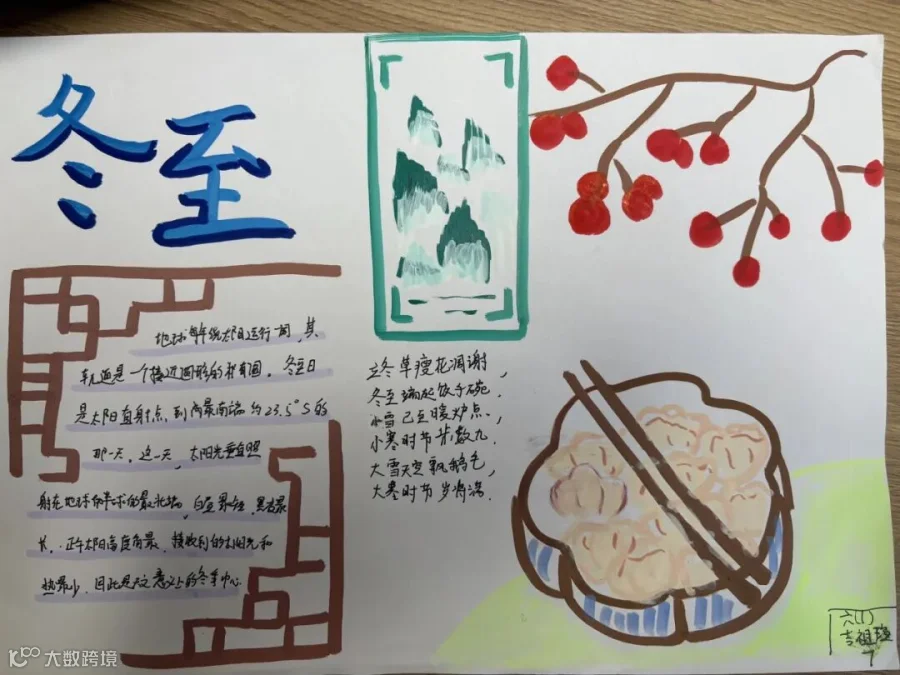 冬至
地球每年绕太阳运行一周，其
轨道是一个接近圆形的椭圆。冬至日
是太阳直射点到南最南端约23.5°S的
那一天。这一天，太阳光垂直照
射在地球南半球的最北端，白昼最短，黑夜最
长。正午太阳高度角最，接收到的太阳光和
热最少，因此是天文意义上的冬季中心
立冬草瘦花凋谢，
冬至端起饺子碗，
小雪已至暖炉点，
小寒时节肯数九，
大雪天空飘鹅毛，
大寒时节岁将满。
六(1)
吉祖
7
大数跨境